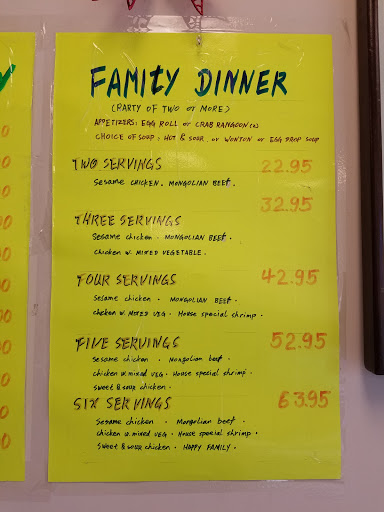 FAMITY DINNER
(PARTY OF TWO or MORE)
APPETIZERS: EGG ROLL or CRAB RANGOON(2)
CHOICE OF SOUP: HOT & SOUR or WONTON or EGG DROP SOUP
TWO SERVINGS 22.95
Sesame CHICKEN. MONGOLIAN BEEF.
32.95
THREE SERVINGS
Sesame chicken . MONGOLIAN BEEF.
Chicken W. MIXED VEGETABLE.
FOUR SERVINGS 42.95
Sesame chicken . MONGOLIAN BEEF.
chicken W. MIXED VEG . House special shrimp.
FIVE SERVINGS 52.95
Sesame chicken . Mongolian beef.
chicken W. mixed VEG . House special shrimp.
sweet & sour chicken.
SIX SERVINGS 63.95
Sesame chicken . Mongolian beef.
chicken W. mixed VEG . House special shrimp.
Sweet & sour chicken . HAPPY FAMILY.